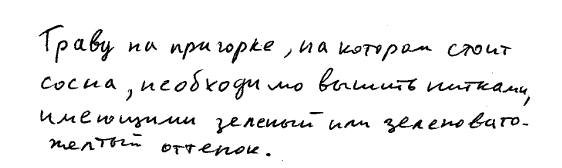 Траву на пригорке, на котором стоит
сосна, необходимо вышить нитками,
имеющими зеленый или зеленовато-
желтый оттенок.